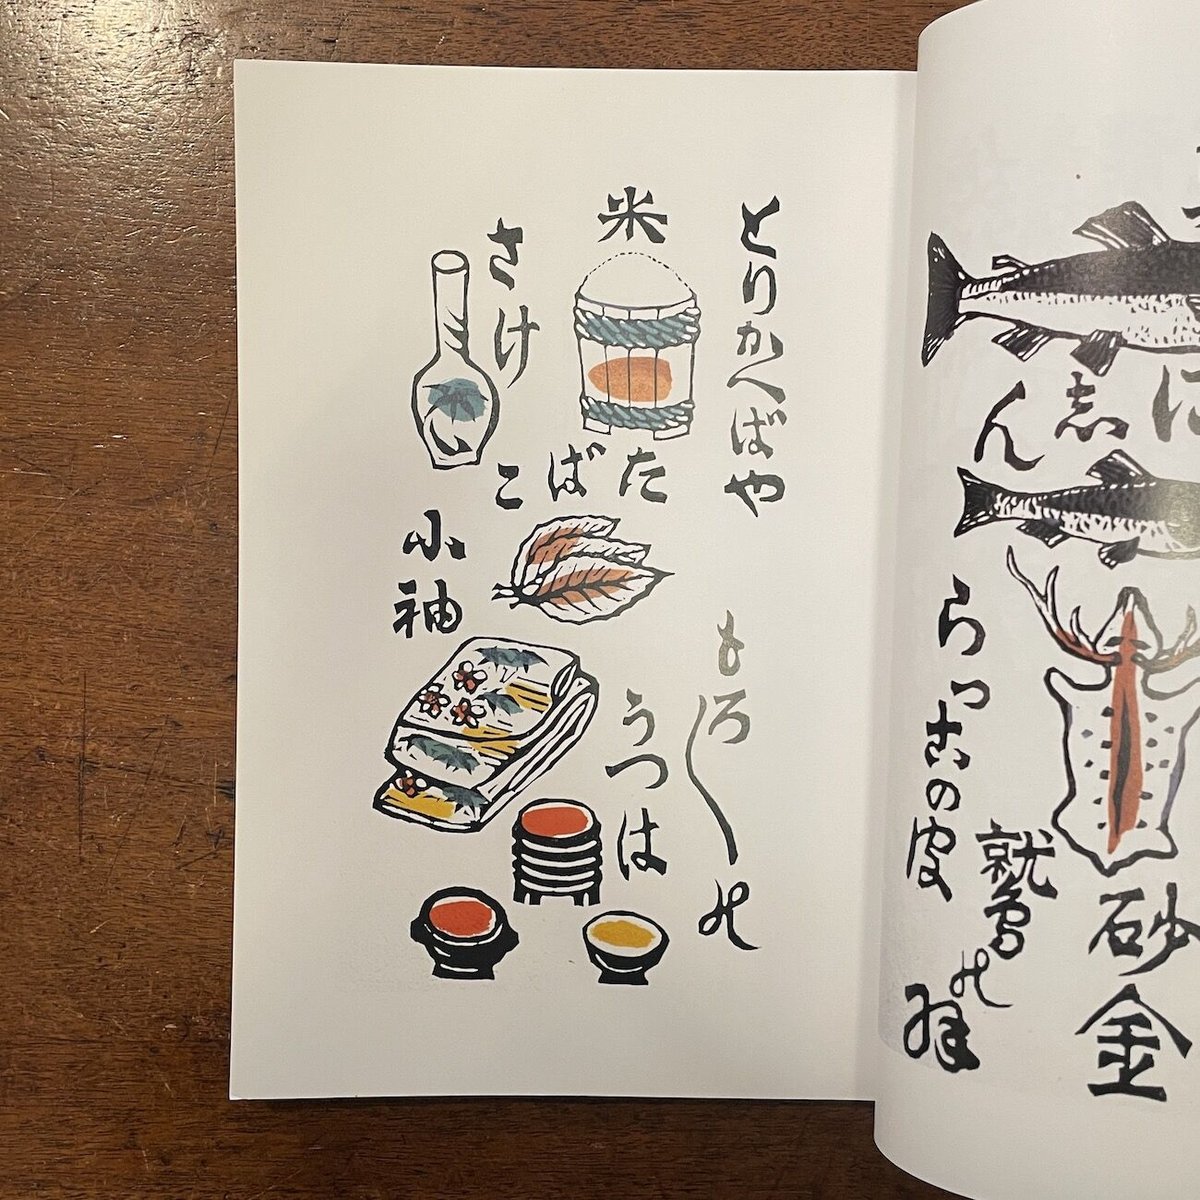 に志ん
砂金
らっこの皮
鷲の羽
とりかへばや
もろ〳〵の
米
さけ
たばこ
小袖
うつは